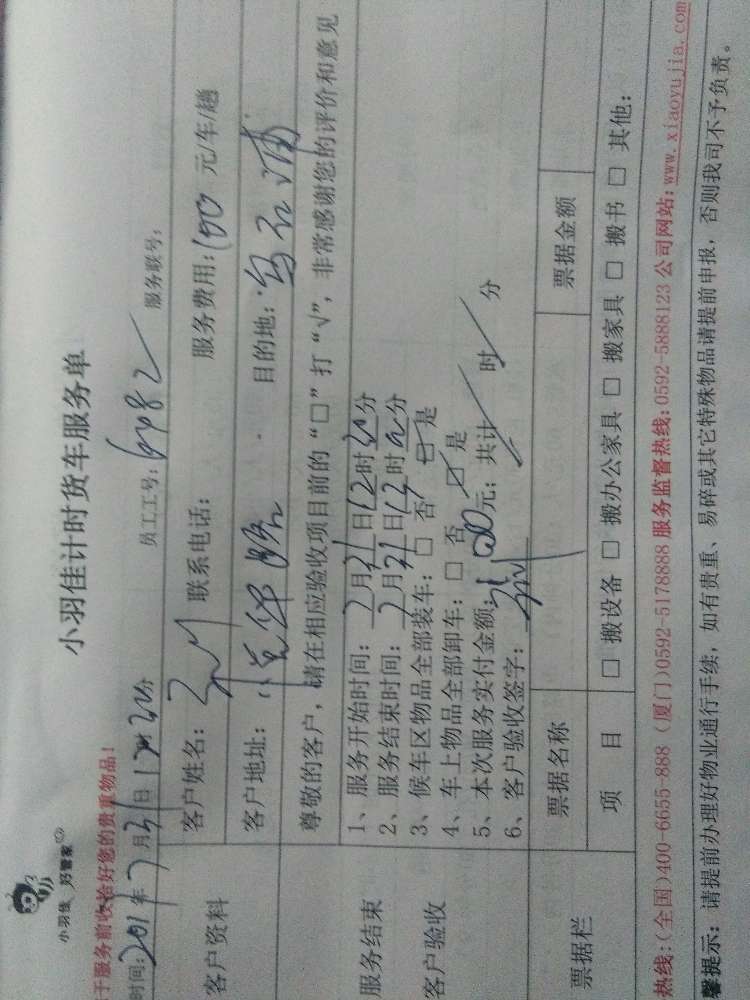 小羽佳 好管家
小羽佳计时货车服务单
于服务前收拾好您的贵重物品!
时间: 201 年 7 月 31 日 员工工号: 服务联号:
客户资料
客户姓名: 联系电话: 服务费用: 100 元/车/趟
客户地址: 目的地:
尊敬的客户，请在相应验收项目前的“□”打“√”，非常感谢您的评价和意见
服务结束
客户验收
1、服务开始时间: 7月31日12时 分
2、服务结束时间: 7月31日 时 分
3、候车区物品全部装车: □ 否 □ 是
4、车上物品全部卸车: □ 否 □ 是
5、本次服务实付金额: 元; 共计 时 分
6、客户验收签字:
票据栏
票据名称 票据金额
项 目 □ 搬设备 □ 搬办公家具 □ 搬家具 □ 搬书 □ 其他:
热线:(全国)400-6655-888 (厦门)0592-5178888 服务监督热线:0592-5888123 公司网站:www.xiaoyujia.com
馨提示: 请提前办理好物业通行手续，如有贵重、易碎或其它特殊物品请提前申报，否则我司不予负责。